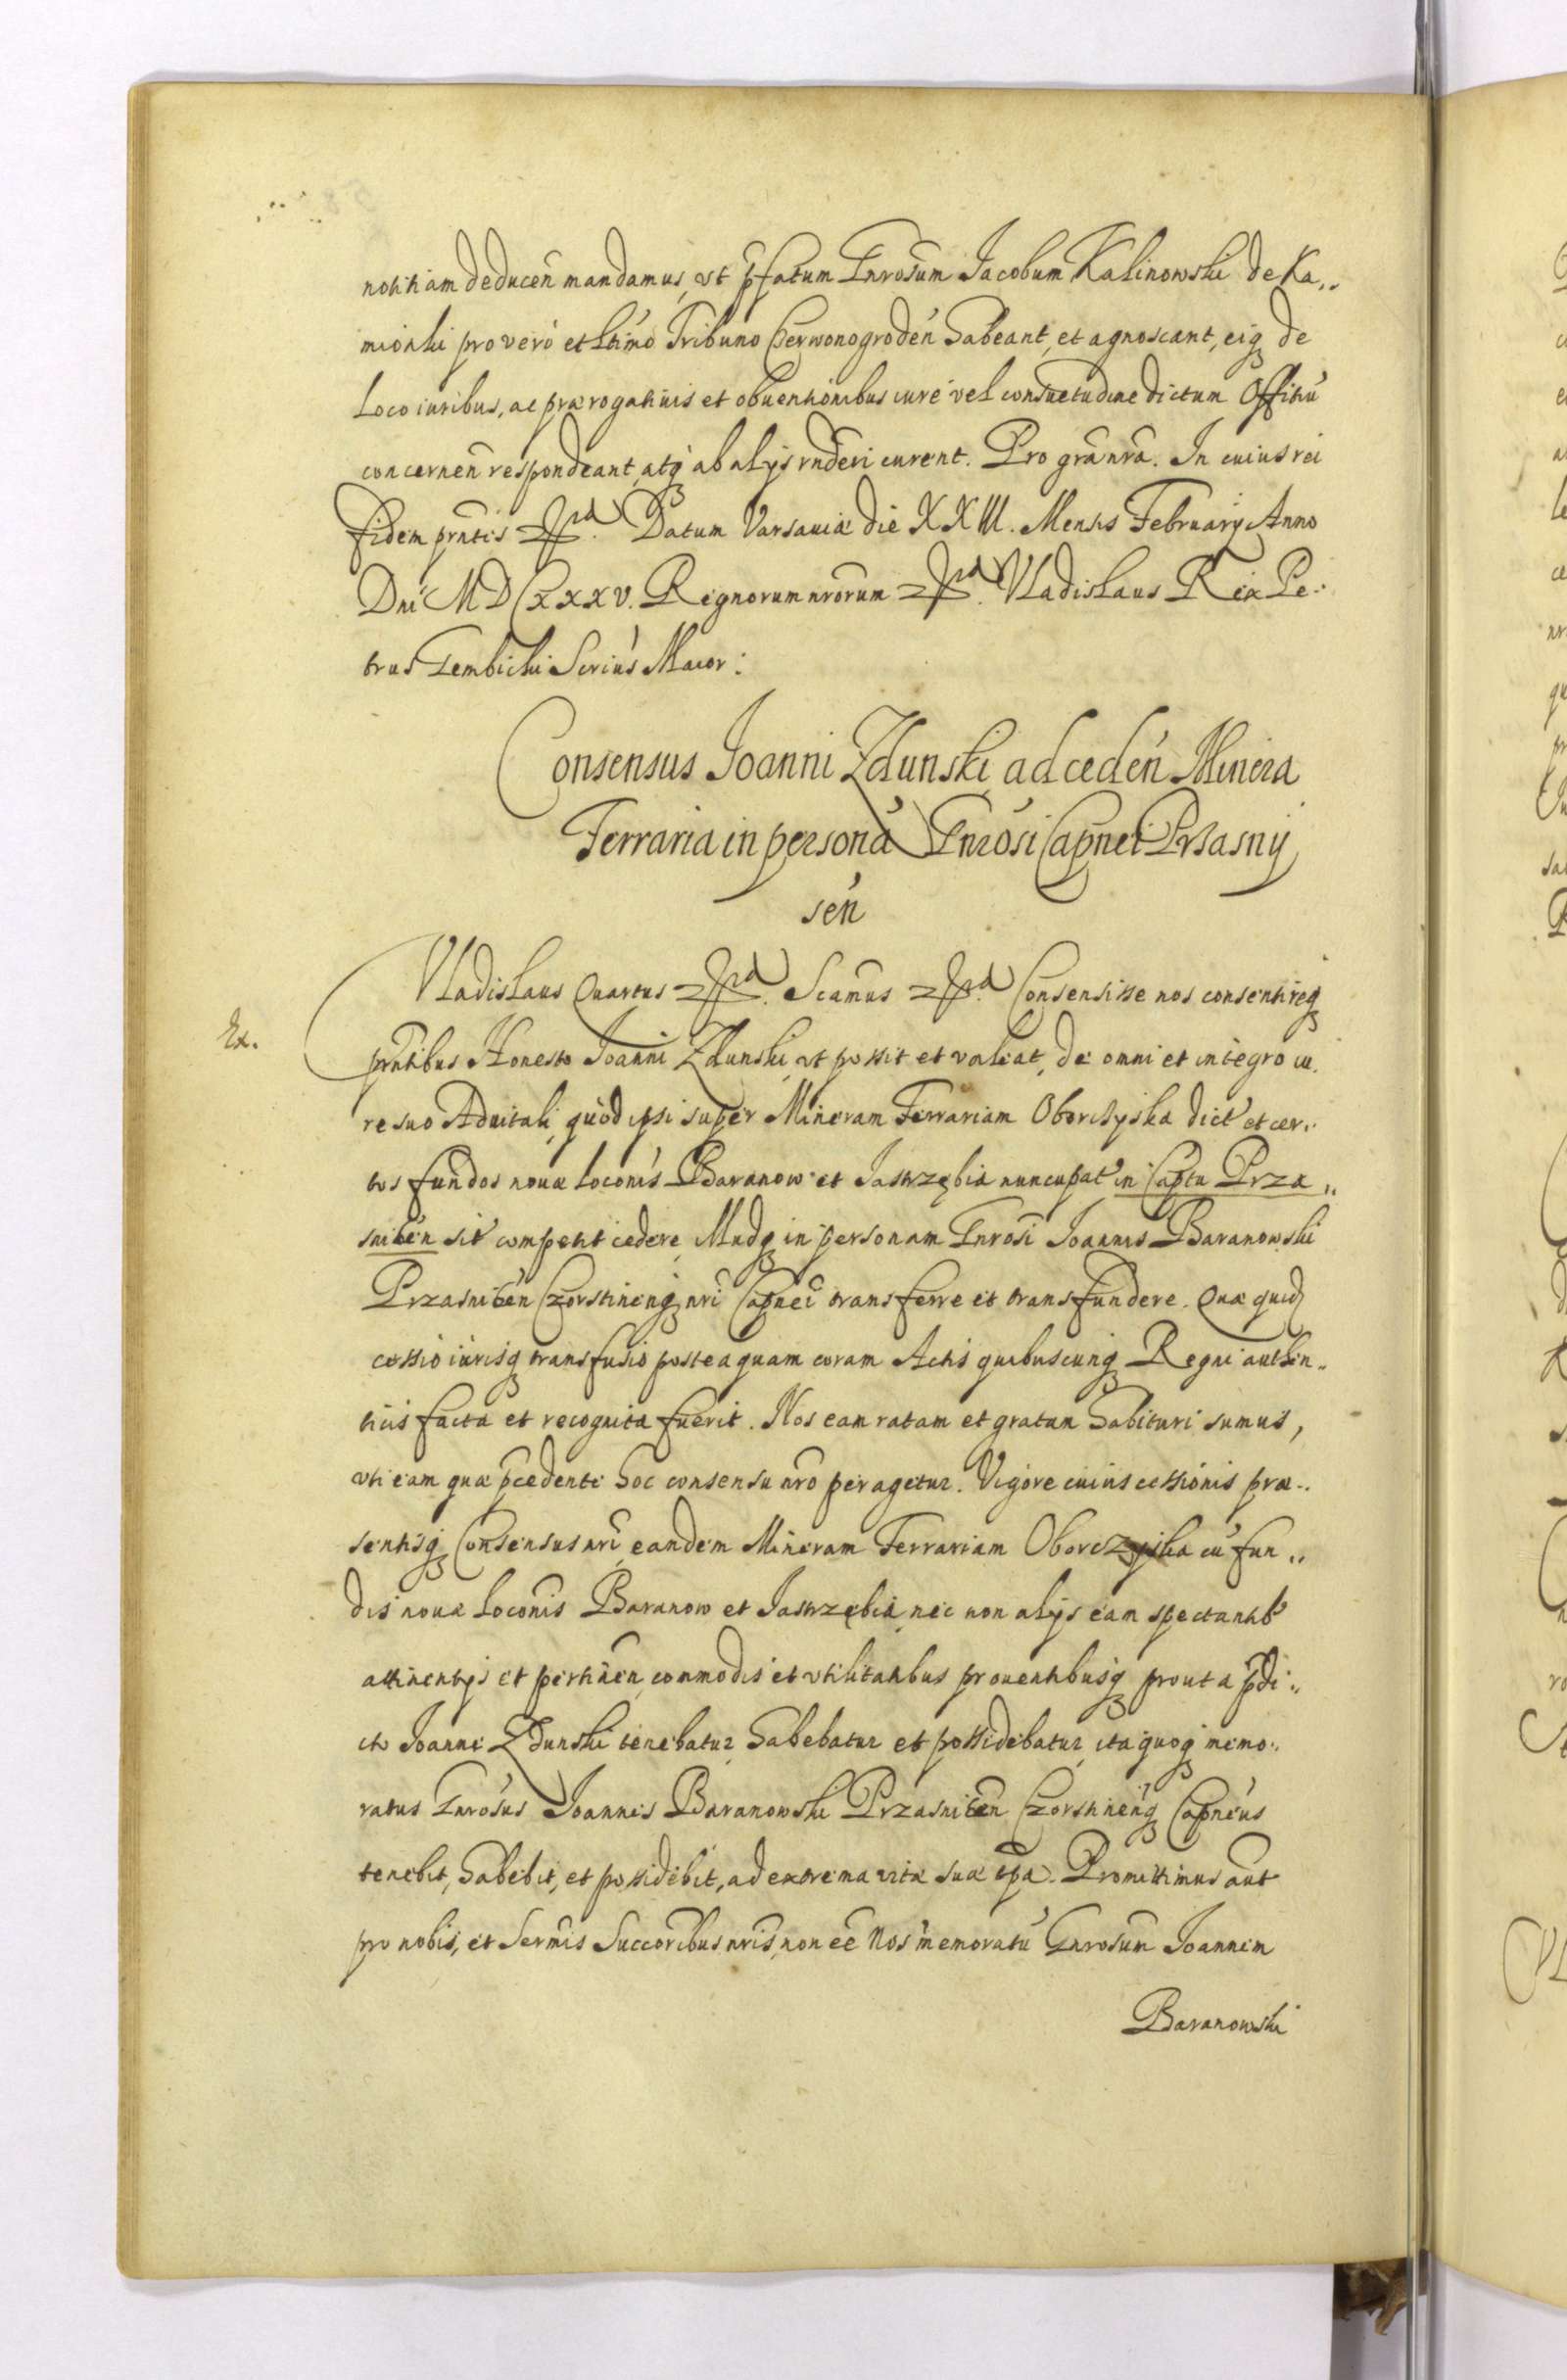 notitiam deducen̄ mandamus, vt p̄fatum Gnrosum Jacobum Kalinowski de Ka„
mionki pro vero et ltimo Tribuno Czerwonogroden̄ habeant, et agnoscant, eiq̨ de
Loco iuribus, ac prærogatiuis et obuentionibus iure vel consuetudine dictum Offitiū
concernen̄ respondeant, atq̨ ab alijs rnderi curent. Pro gra nra. In cuius rei
fidem prntis &. Datum Varsauiæ die XXIII. Mensis February Anno
Dni MDCXXXV. Regnorum nrorum &. Vladislaus Rex Pe„
trus Gembicki Scrius Maior:
Consensus Joanni Zdunski ad ceden̄ Minera
Ferraria in personā Gnrosi Capnei Przasnij
sen̄
Ex.
Vladislaus Quartus &. Scamus & Consensisse nos consentireq̨
prntibus Honesto Joanni Zdunski, vt possit et valeat, de omni et integro iu„
re suo Aduitali, quod ipsi super Mineram Ferrariam Oborczyska dict et cer„
tos fundos nouæ loconis Baranow et Jastrzębia nuncupat in Captu Prza„
snicen̄ sit competit cedere, Illudq̨ in personam Gnrosi Joannis Baranowski
Przasnicen̄ Czorstinenq̨ nri Capnei transferre et transfundere. Quæ quid
cessio iurisq̨ transfusio posteaquam coram Actis quibuscunq̨ Regni authen„
ticis facta et recognita fuerit. Nos eam ratam et gratam habituri sumus,
vti eam quæ p̄cedente hoc consensu nro peragetur. Vigore cuius cessionis præ„
sentisq̨ Consensus nri, eandem Mineram Ferrariam Oborczyska cū fun„
dis nouæ loconis Baranow et Jastrzębia, nec non alijs eam spectantib
attinentijs et pertinen̄, commodis et vtilitatibus prouentibusq̨ prout a p̄di„
cto Joanne Zdunski tenebatur, habebatur et possidebatur, ita quoq̨ memo„
ratus Gnrosus Joannes Baranowski Przasnicen̄ Czorstinen̄q̨ Capneus
tenebit, habebit, et possidebit, ad extrema vitæ suæ tpa. Promittimus aut
pro nobis, et Sermis Succoribus nris, non eē Nos memoratū Gnrosum Joannem
Baranowski